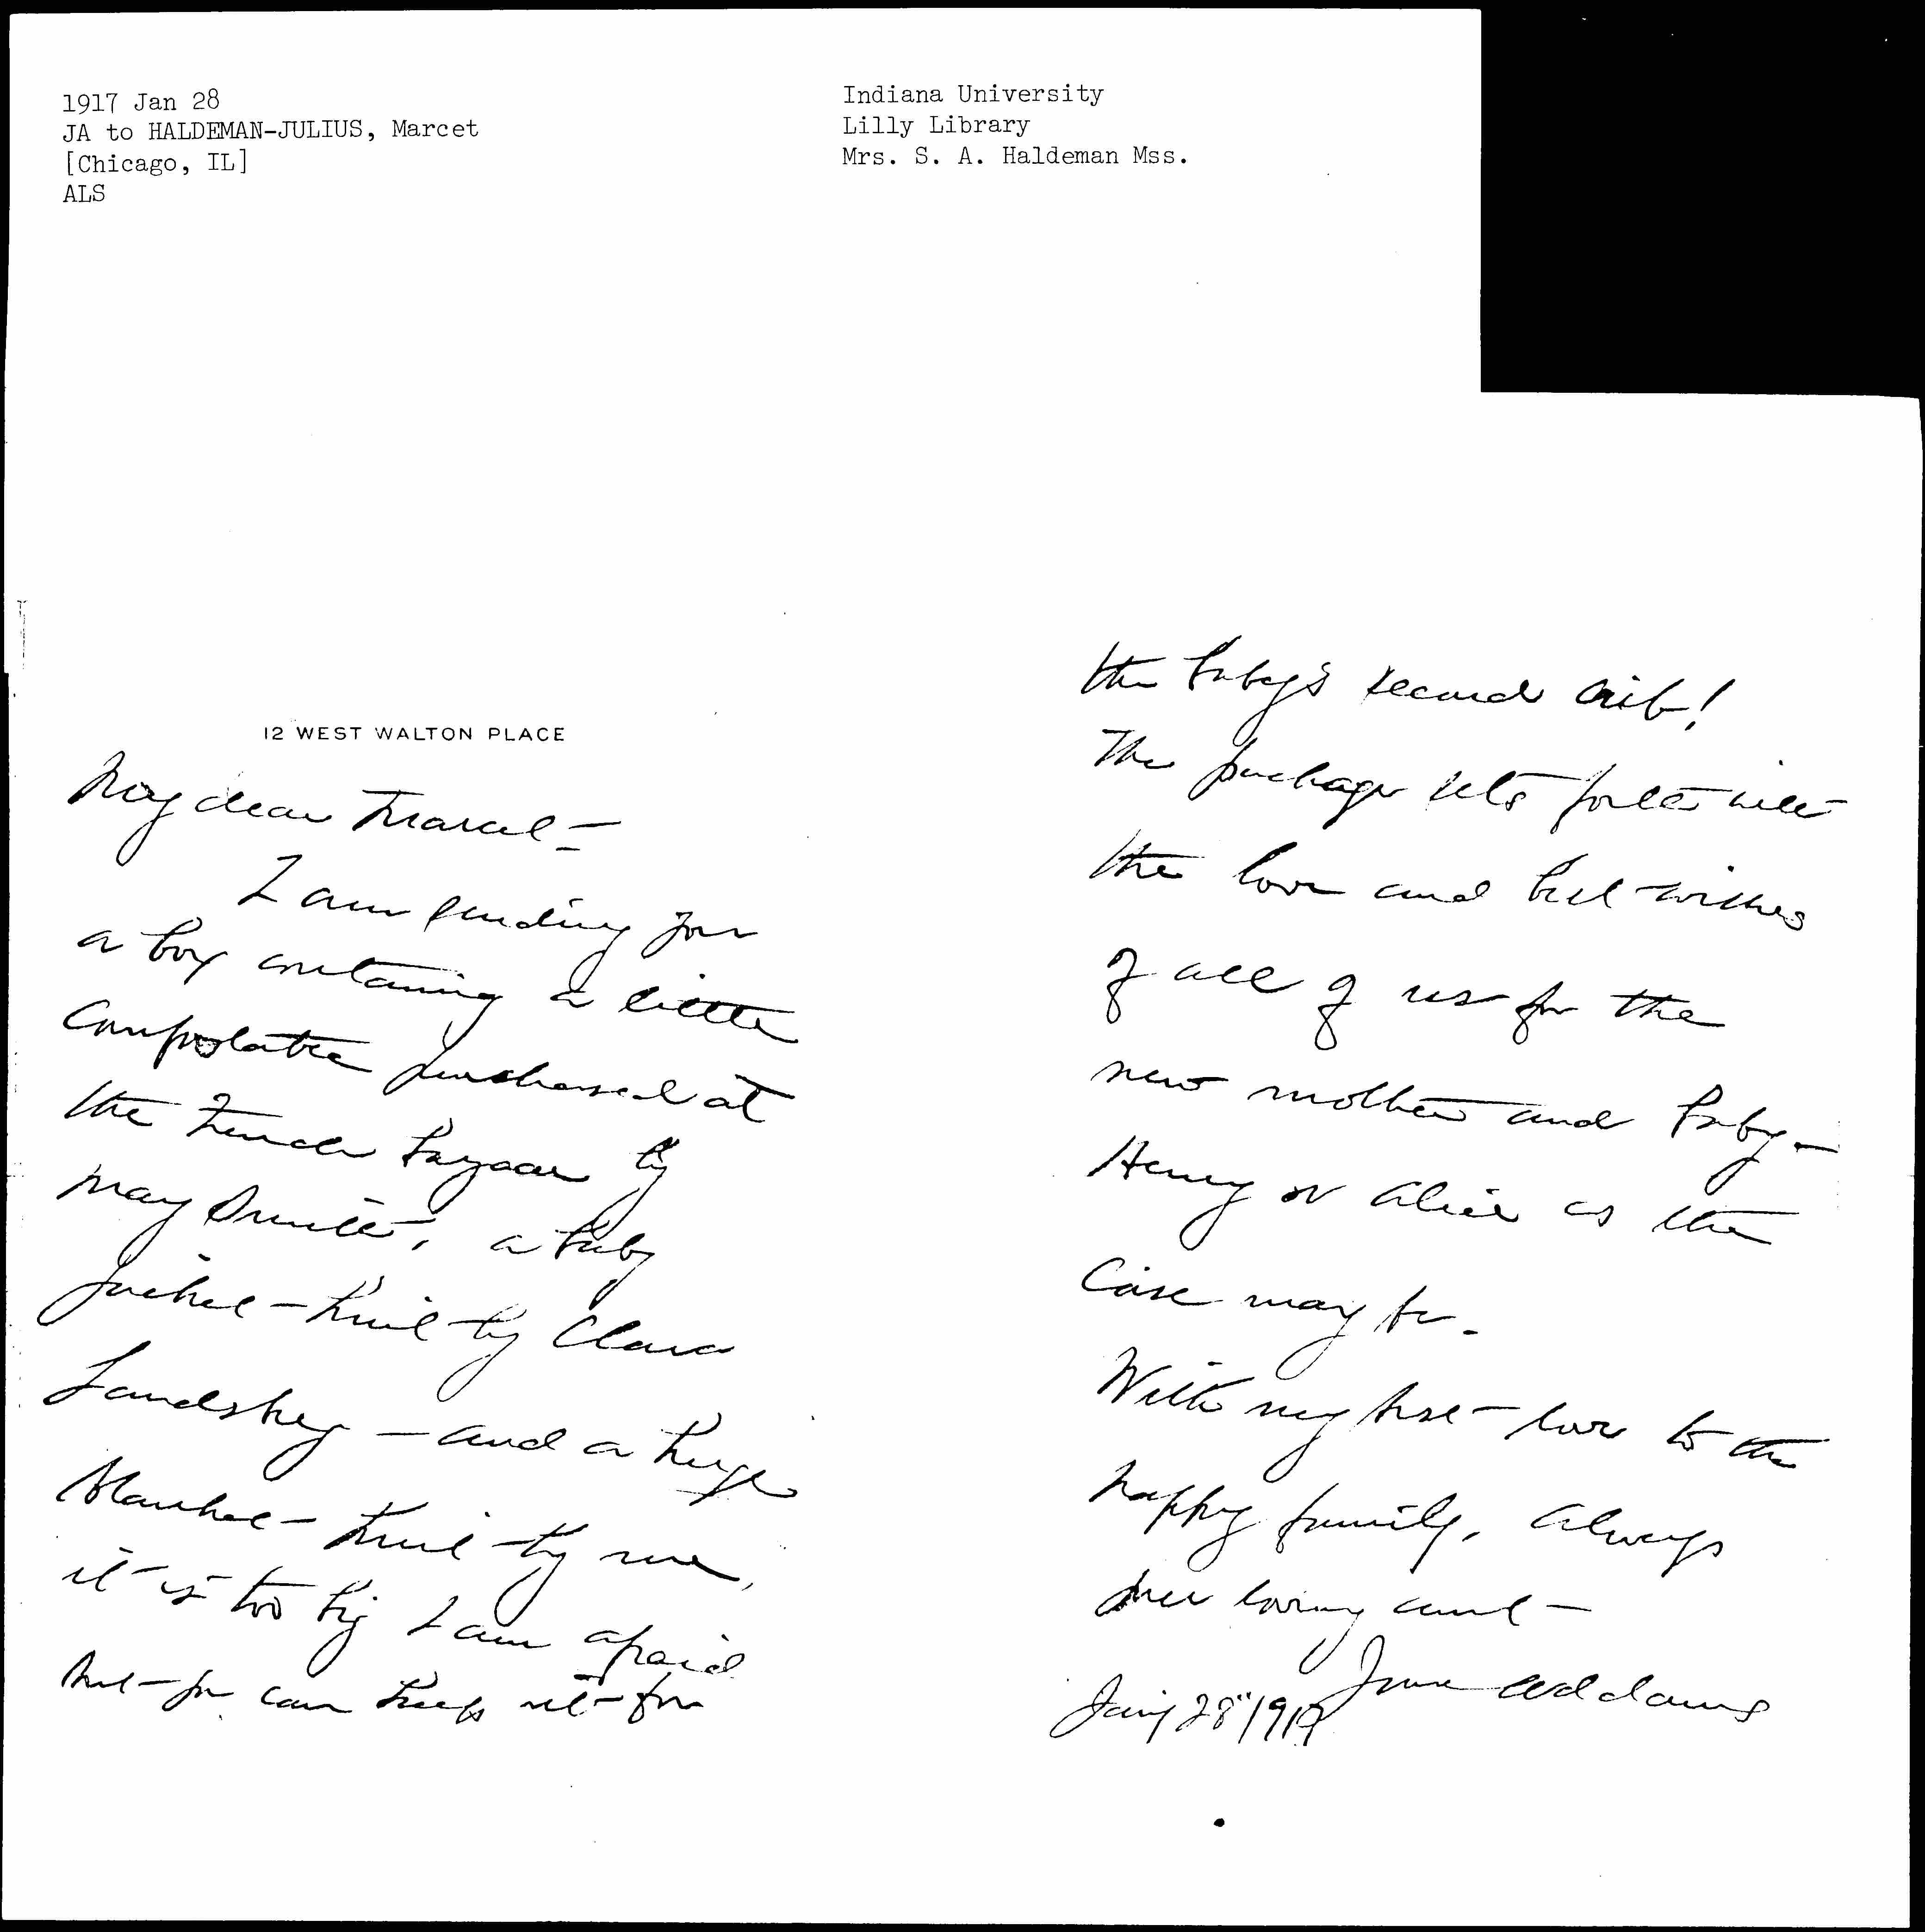 1917 Jan 28
JA to HALDEMAN-JULIUS, Marcet
[Chicago, IL]
ALS
Indiana University
Lilly Library
Mrs. S. A. Haldeman Mss.
12 WEST WALTON PLACE
My dear Marcet –
I am sending you
a box containing a little
purchased at
the French Bazaar by
Mary Smith, a baby
jacket – knit by Clara
Landsberg – and a huge
blanket – knit by me,
it is too big I am afraid
but – you can keep it – for
the baby's second crib!
The package sets forth with
the love and best wishes
of all of us for the
new mother and baby –
Henry or Alice as the
case may be.
With my best – love to the
happy family, always
your loving aunt –
Jane Addams
Jan'y 28" 1917